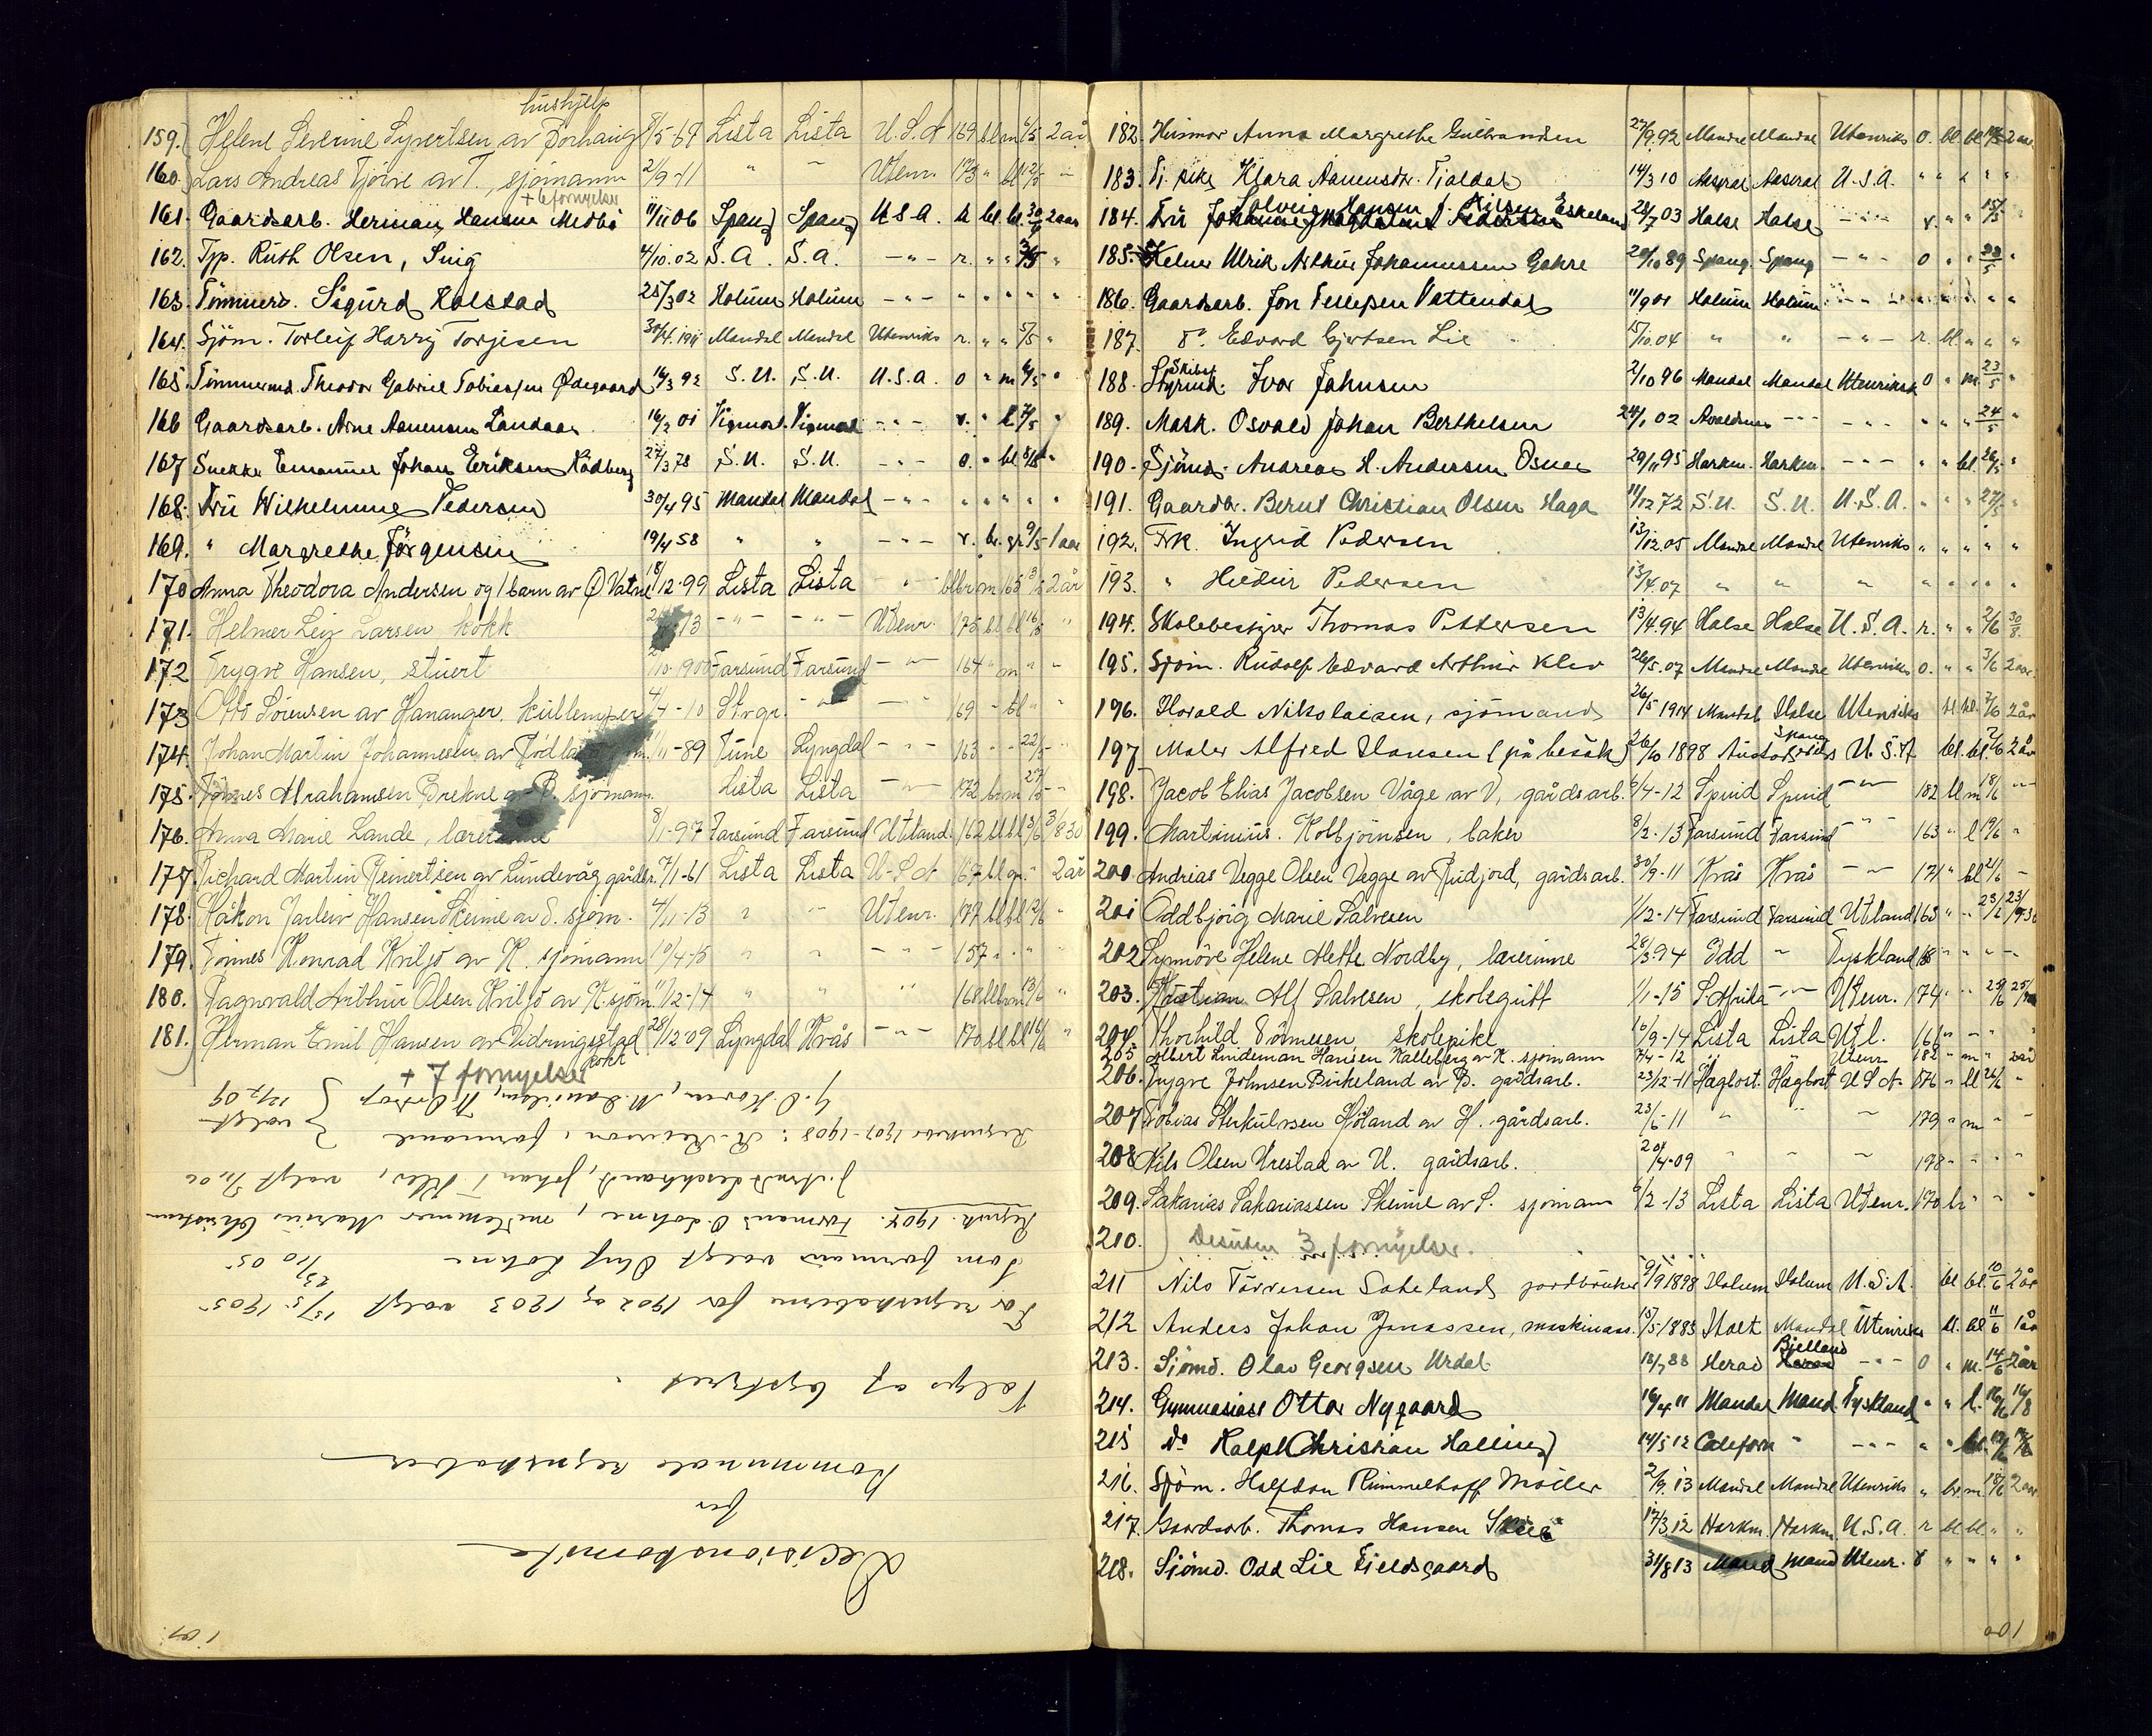 hushjelp
159. Helene Severine Syvertsen av Torhaug 8/5-69 Lista Lista U.S.A 169 bl m 6/5 2 år
160. Lars Andreas Tjörve av T., sjömann 2/9-11 " - Utenr. 173 " bl 12/5 -
+ 6 fornyelser
161. Gaardsarb. Herman Hansen Medbö 11/11 06 Spang Spang U.S.A. bl. bl. 2 aar
162. Typ. Ruth Olsen, Svig 4/10.02 S.A. S.A. -"- r. " " "
163. Tömmerm. Sigurd Holstad 25/3 02 Holum Holum -"- " " " " "
164. Sjöm. Torleif Harry Torjesen 30/4.1911 Mandal Mandal Utenriks r. " " 5/5 "
165. Tömmermd. Theodor Gabriel Tobiassen Ödegaard 16/3 92 S.U. S.U. U.S.A. o " m 6/5 "
166 Gaardsarb. Arne Aanensen Landaas 16/2 01 Vigmost. Vigmost -"- r. " bl 7/5 "
167 Snekker Emanuel Johan Eriksen Rödberg 27/3 78 S.U. S.U. -"- o. " bl 8/5 "
168. Fru Wilhelmine Pedersen 30/4 95 Mandal Mandal -"- " " " " "
169. " Margrethe Jörgensen 19/4 58 " " -"- r. br. gr. 9/5 1 aar
170 Anna Theodora Andersen og 1 barn av Ö Vatne 18/12-99 Lista Lista -"- bl br m 165 3/5 2 år
171. Helmer Leif Larsen, kokk 13 -"- -"- Utenr. 175 bl bl 16/5 "
172 Trygve Hansen, stuert /10-1900 Farsund Farsund -"- 164 " m " "
173 Otto Sörensen av Hananger, kullemper 4/4-10 Str.gr. -"- - 169 - bl " "
174. Johan Martin Johannesen, av 11-89 Tune Lyngdal -"- 163 - - 22/5 -
175. Tönnes Abrahamsen Brekne av B. sjömann. Lista Lista -"- 172 br m 27/5 -
176. Anna Marie Lande, lærerinne 8/11-97 Farsund Farsund Utland 162 bl bl 3/6 3/8 30
177. Richard Martin Reinertsen av Lundevåg gårdbr. 7/1-61 Lista Lista U.S.A 167 bl gr " 2 år
178. Håkon Jarleiv Hansen Skeime av S. sjöm. 4/11-13 " " Utenr. 177 bl bl 12/6 "
179. Tönnes Konrad Kviljo av K. sjömann 10/4-15 " " -"- 157 " " " "
180. Ragnvald Arthur Olsen Kviljo av K. sjöm. 11/12-14 " " " 168 bl br m 13/6 "
181. Herman Emil Hansen av Vidringsstad 28/12-09 Lyngdal Kvås -"- 170 bl bl 16/6 "
kokk
+ 7 fornyelser
Decisionskomite
for
Kommunale regnskaber
Valgt af bystyret.
For regnskaberne for 1902 og 1903 valgt 13/5-1905
Som formand valgt Oluf Lohne 23/10 05
Regnsk. 1904. Formand O. Lohne, medlemmer Marius Christensen
J. Arndt Leschbrandt, Johan T. Klev, valgt 7/11 06
Regnskab 1907-1908: formand
valgt 14/2 09
182. Husmor Anna Margrethe Gulbrandsen 27/9.92 Mandal Mandal Utenriks o. bl. bl. 14/5 2 aar
183. Tj. pike Klara Aanensdtr. Tjaldal 14/3 10 Aaseral Aaseral U.S.A. " " " " "
184. Fru Solveig Hansen f. Nilsen Eskeland 28/7 03 Halse Halse -"- r. " " 15/5 "
185. Kelner Ulrik Arthur Johannessen Gahre 20/10 89 Spang. Spang -"- o " " 23/5 "
186. Gaardsarb. Jon Tellefsen Vattendal 11/9 01 Holum Holum -"- " " "
187. do. Edvard Gjertsen Lie 15/10.04 " " -"- r. bl. " " "
188. Skibsf. Ivar Johnsen 2/10 96 Mandal Mandal Utenriks o " m 23/5 "
189. Mask. Osvald Johan Berthelsen 24/1 02 Avaldsnes -"- -"- " " " 24/5 "
190. Sjömd. Andreas H. Andersen Osnes 29/11 95 Harkm. Harkm. -"- " " bl. 26/5 "
191. Gaardbr. Bernt Christian Olsen Haga 11/12 72 S.U. S.U. U.S.A. " " " 27/5 "
192. Frk. Ingrid Pedersen 13/12.05 Mandal Mandal Utenriks " " " " "
193. " Hildur Pedersen 13/4.07 " " " " " " " "
194. Skolebestyrer Thomas Pettersen 13/4.94 Halse Halse U.S.A. r. " " 2/6 30/8
195. Sjöm. Rudolf Edvard Arthur Klev 26/5.07 Mandal Mandal Utenriks o. " " 3/6 2 aar
196. Harald Nikolaisen, sjömand 26/5 1914 Mandal Halse Utenriks bl bl. 7/6 2 år
197 Maler Alfred Hansen (på besök) 26/10 1898 Spang U.S.A bl. bl 7/6 2 år
198. Jacob Elias Jacobsen Våge av V, gårdsarb. 6/4-12 Spind Spind -"- 182 bl m 18/6 -"-
199. Martinius Kolbjörnsen, baker 8/2-13 Farsund Farsund -"- 163 " l 19/6 "
200. Andrias Vegge Olsen Vegge av Rudjord, gårdsarb. 30/9-11 Kvås Kvås -"- 171 " bl 21/6 -
201 Oddbjörg Marie Salvesen 1/12-14 Farsund Farsund Utland 163 " " 23/6 23/9 30
202 Synnöve Helene Mette Nordby, lærerinne 28/3 94 Idd " Tyskland 168 " " " "
203. Kristian Alf Salvesen, skolegutt 1/1-15 S. Afrika -"- Utenr. 174 " " 25/6
204. Thorhild Tönnesen, skolepike 16/9-14 Lista Lista Utl. 166 " " " "
205 Albert Lindeman Hansen Kalleberg av K. sjömann 7/4-12 " " Utenr 182 " m " 2 år
206. Trygve Johnsen Birkeland av B. gårdsarb. 23/12-11 Hægbost. Hægbost U S A 176 " bl 26/6 "
207 Tobias Sterkulvsen Höland av H. gårdsarb. 23/6-11 " " " 179 " m " "
208 Nils Olsen Urestad av U. gårdsarb. 20/4-09 " " " 178 " " " "
209. Sakarias Sakariassen Skeime av S. sjömann 6/2-13 Lista Lista Utenr. 170 br " " "
210. Desuten 3 fornyelser.
211 Nils Tarversen Sateland jordbruker 9/9 1898 Holum Holum U.S.A. bl bl. 10/6 2 år
212 Anders Johan Jonassen, maskinass. 15/5-1885 Holt Mandal Utenriks bl. bl 11/6 1 år
213. Sjömd. Olav Georgsen Urdal 18/7 88 Herad Bjelland -"- o " m. 14/6 2 år
214. Gymnasiast Ottar Nygaard 16/4 11 Mandal Mand. Tyskland " " l. 16/6 16/8
215 do Ralph Christian Halling 14/5 12 Californ " -"- " " bl.
216. Sjöm. Halfdan Rimmelhoff Möller 2/9.13 Mandal Mandal Utenriks " br. m. 18/6 2 aar
217. Gaardsarb. Thomas Hansen 17/3 12 Harkm. Harkm. U.S.A. r bl bl. " "
218. Sjömd. Odd Lie Fieldsgaard 31/8 13 Mand Mand Utenr. r " " " "
101